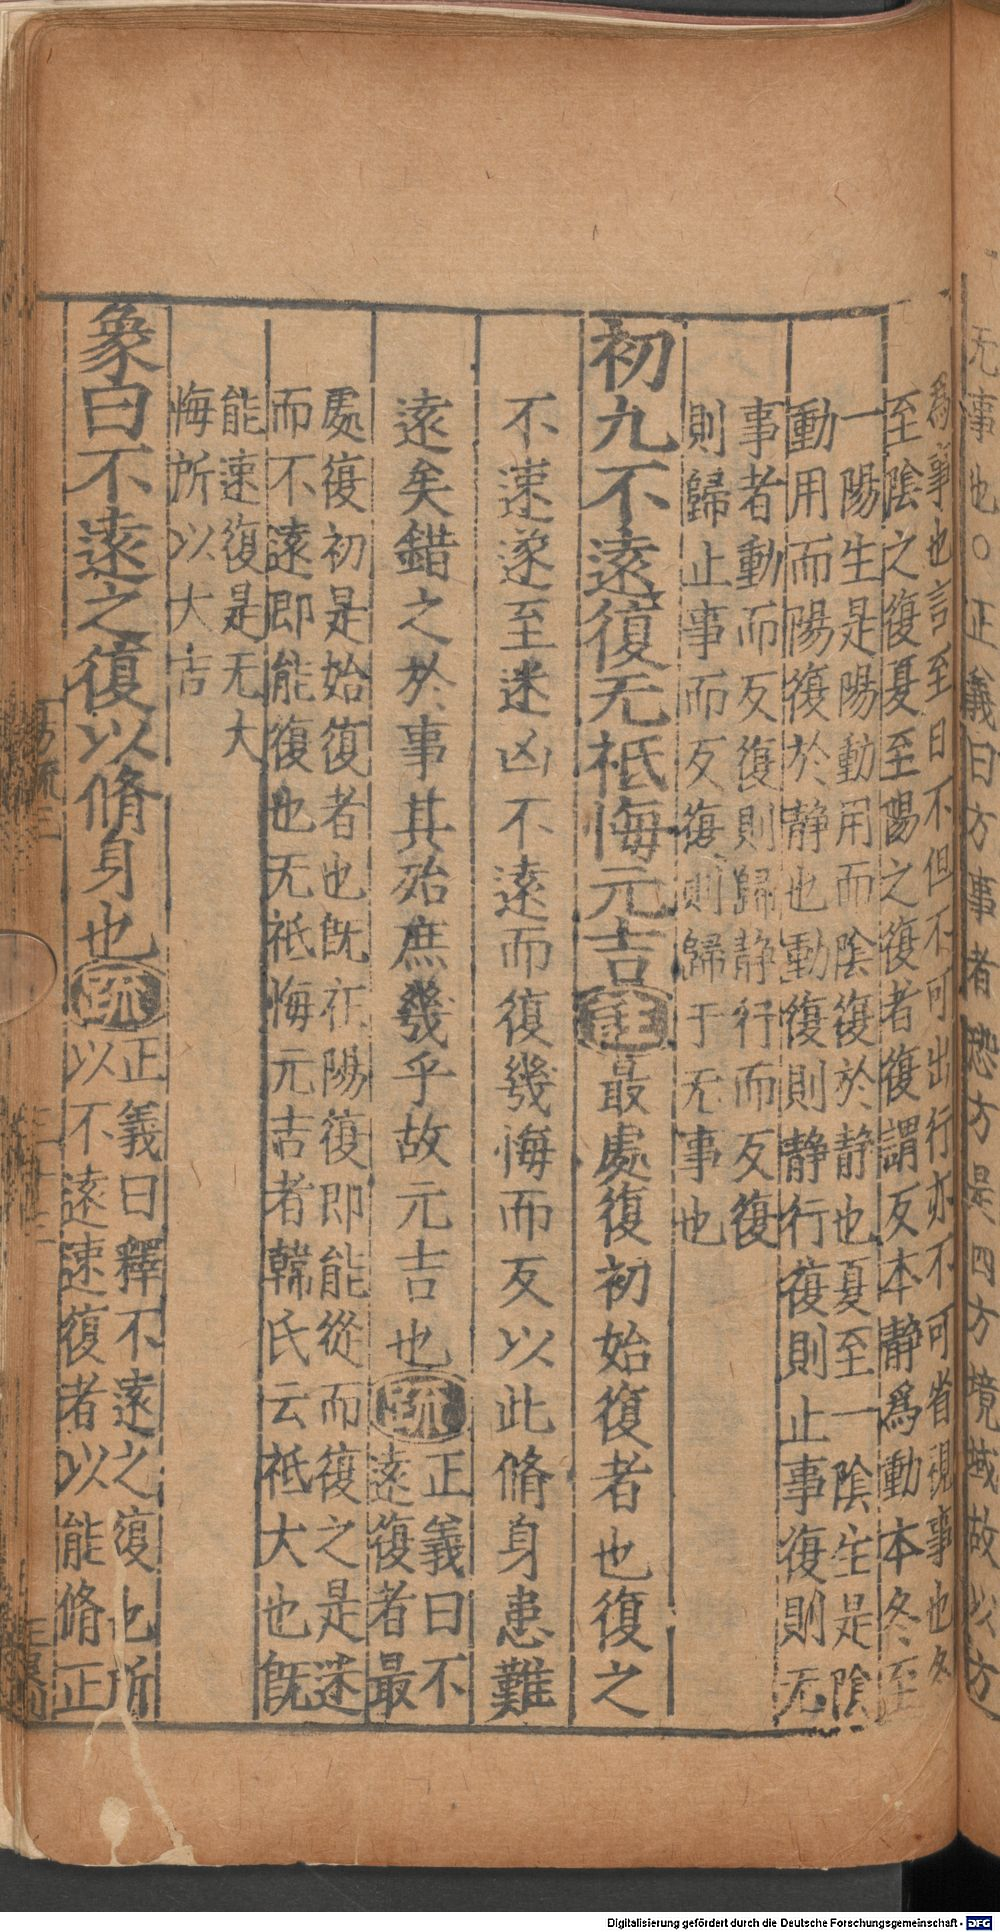 无事也○正義曰方事者恐方是四方境域故以方
爲事也言至日不但不可出行亦不可省視事也冬
至陰之復夏至陽之復者復謂反本靜爲動本冬至
一陽生是陽動用而陰復於静也夏至一陰生是陰
動用而陽復於静也動復則静行復則止事復則无
事者動而反復則歸静行而反復
則歸止事而反復則歸于无事也
初九不遠復无祗悔元吉 注 最處復初始復者也復之
不速遂至迷凶不遠而復幾悔而反以此脩身患難
遠矣錯之於事其殆庶幾乎故元吉也 疏 正義曰不
遠復者最
處復初是始復者也旣在陽復即能從而復之是迷
而不遠即能復也无祗悔元吉者韓氏云祗大也旣
能速復是无大
悔所以大吉
象曰不遠之復以脩身也 疏 正義曰釋不遠之復也所
以不遠速復者以能脩正
易疏三
Digitalisierung gefördert durch die Deutsche Forschungsgemeinschaft - DFG